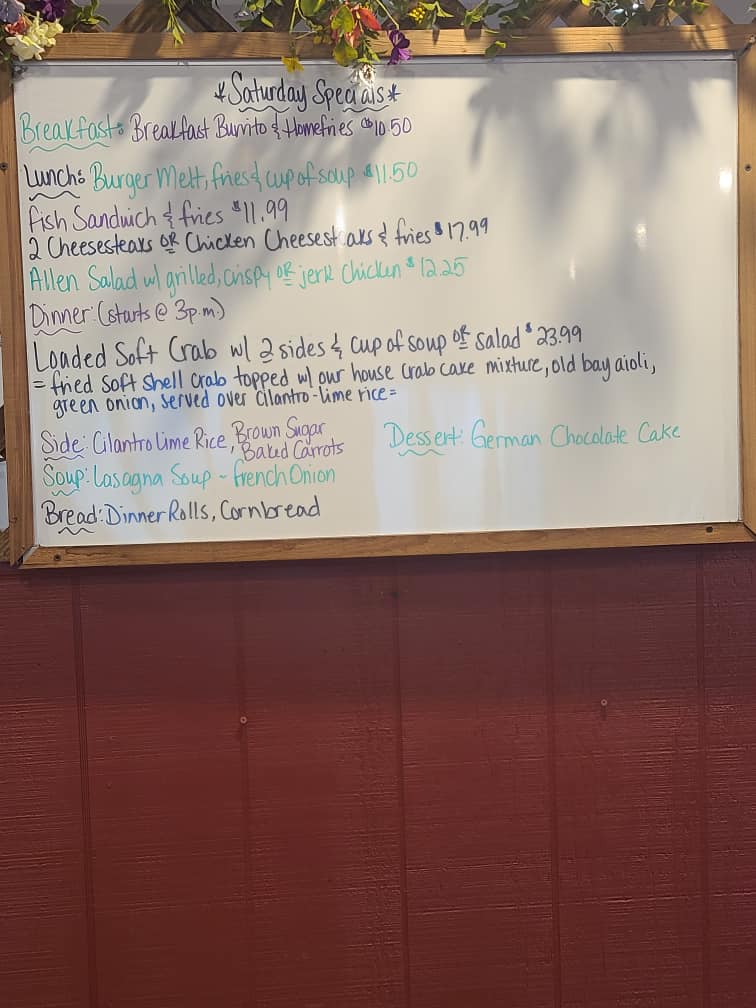 *Saturday Specials*
Breakfast: Breakfast Burrito & Homefries $10.50
Lunch: Burger Melt, fries & cup of soup $11.50
Fish Sandwich & fries $11.99
2 Cheesesteaks OR Chicken Cheesesteaks & fries $17.99
Allen Salad w/ grilled, crispy OR jerk chicken $12.25
Dinner: (starts @ 3p.m.)
Loaded Soft Crab w/ 2 sides & cup of soup OR salad $23.99
= fried soft shell crab topped w/ our house crab cake mixture, old bay aioli,
green onion, served over cilantro-lime rice =
Side: Cilantro Lime Rice, Brown Sugar
Baked Carrots
Dessert: German Chocolate Cake
Soup: Lasagna Soup - French Onion
Bread: Dinner Rolls, Cornbread